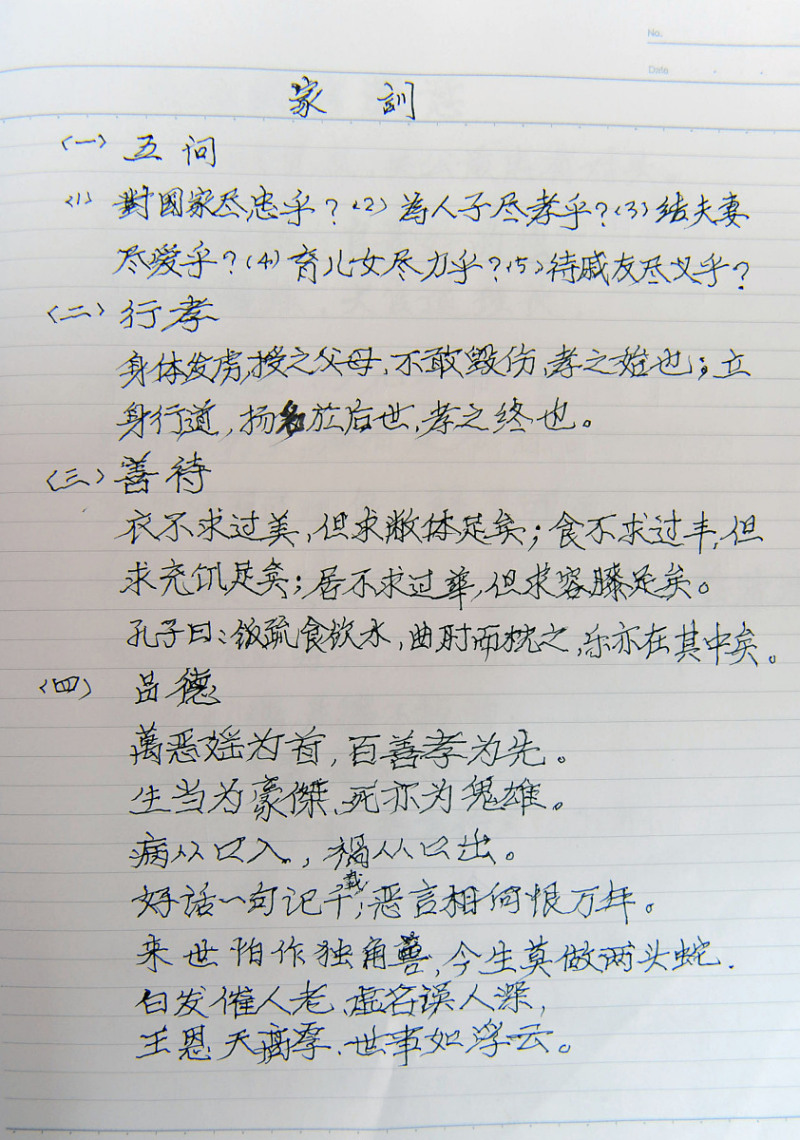 No.
Date
家 訓
(一) 五 问
(1) 對國家尽忠乎?(2) 為人子尽孝乎?(3) 结夫妻
尽爱乎?(4) 育儿女尽力乎?(5) 待戚友尽义乎?
(二) 行孝
身体发虏,授之父母,不敢毁伤,孝之始也;立
身行道,扬名於后世,孝之终也。
(三) 善待
衣不求过美,但求敝体足矣;食不求过丰,但
求充饥足矣;居不求过華,但求容膝足矣。
孔子曰:饭疏食饮水,曲肘而枕之,乐亦在其中矣。
(四) 品德
萬恶婬为首,百善孝为先。
生当为豪傑,死亦为鬼雄。
病从口入,祸从口出。
好话一句记千載,恶言相向恨万年。
来世怕作独角兽,今生莫做两头蛇.
白发催人老,虚名误人深,
王恩天高厚,世事如浮云。